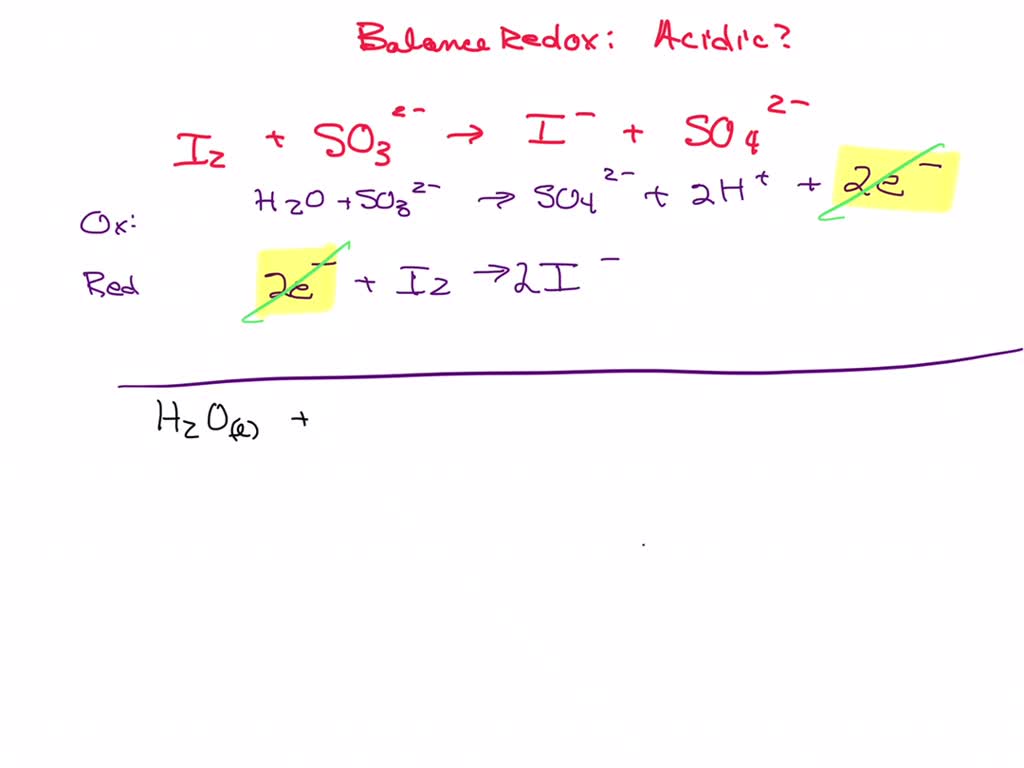 Balance Redox: Acidic?
I₂ + SO₃²⁻ → I⁻ + SO₄²⁻
Ox: H₂O + SO₃²⁻ → SO₄²⁻ + 2H⁺ + 2e⁻
Red 2e⁻ + I₂ → 2I⁻
H₂O(l) +